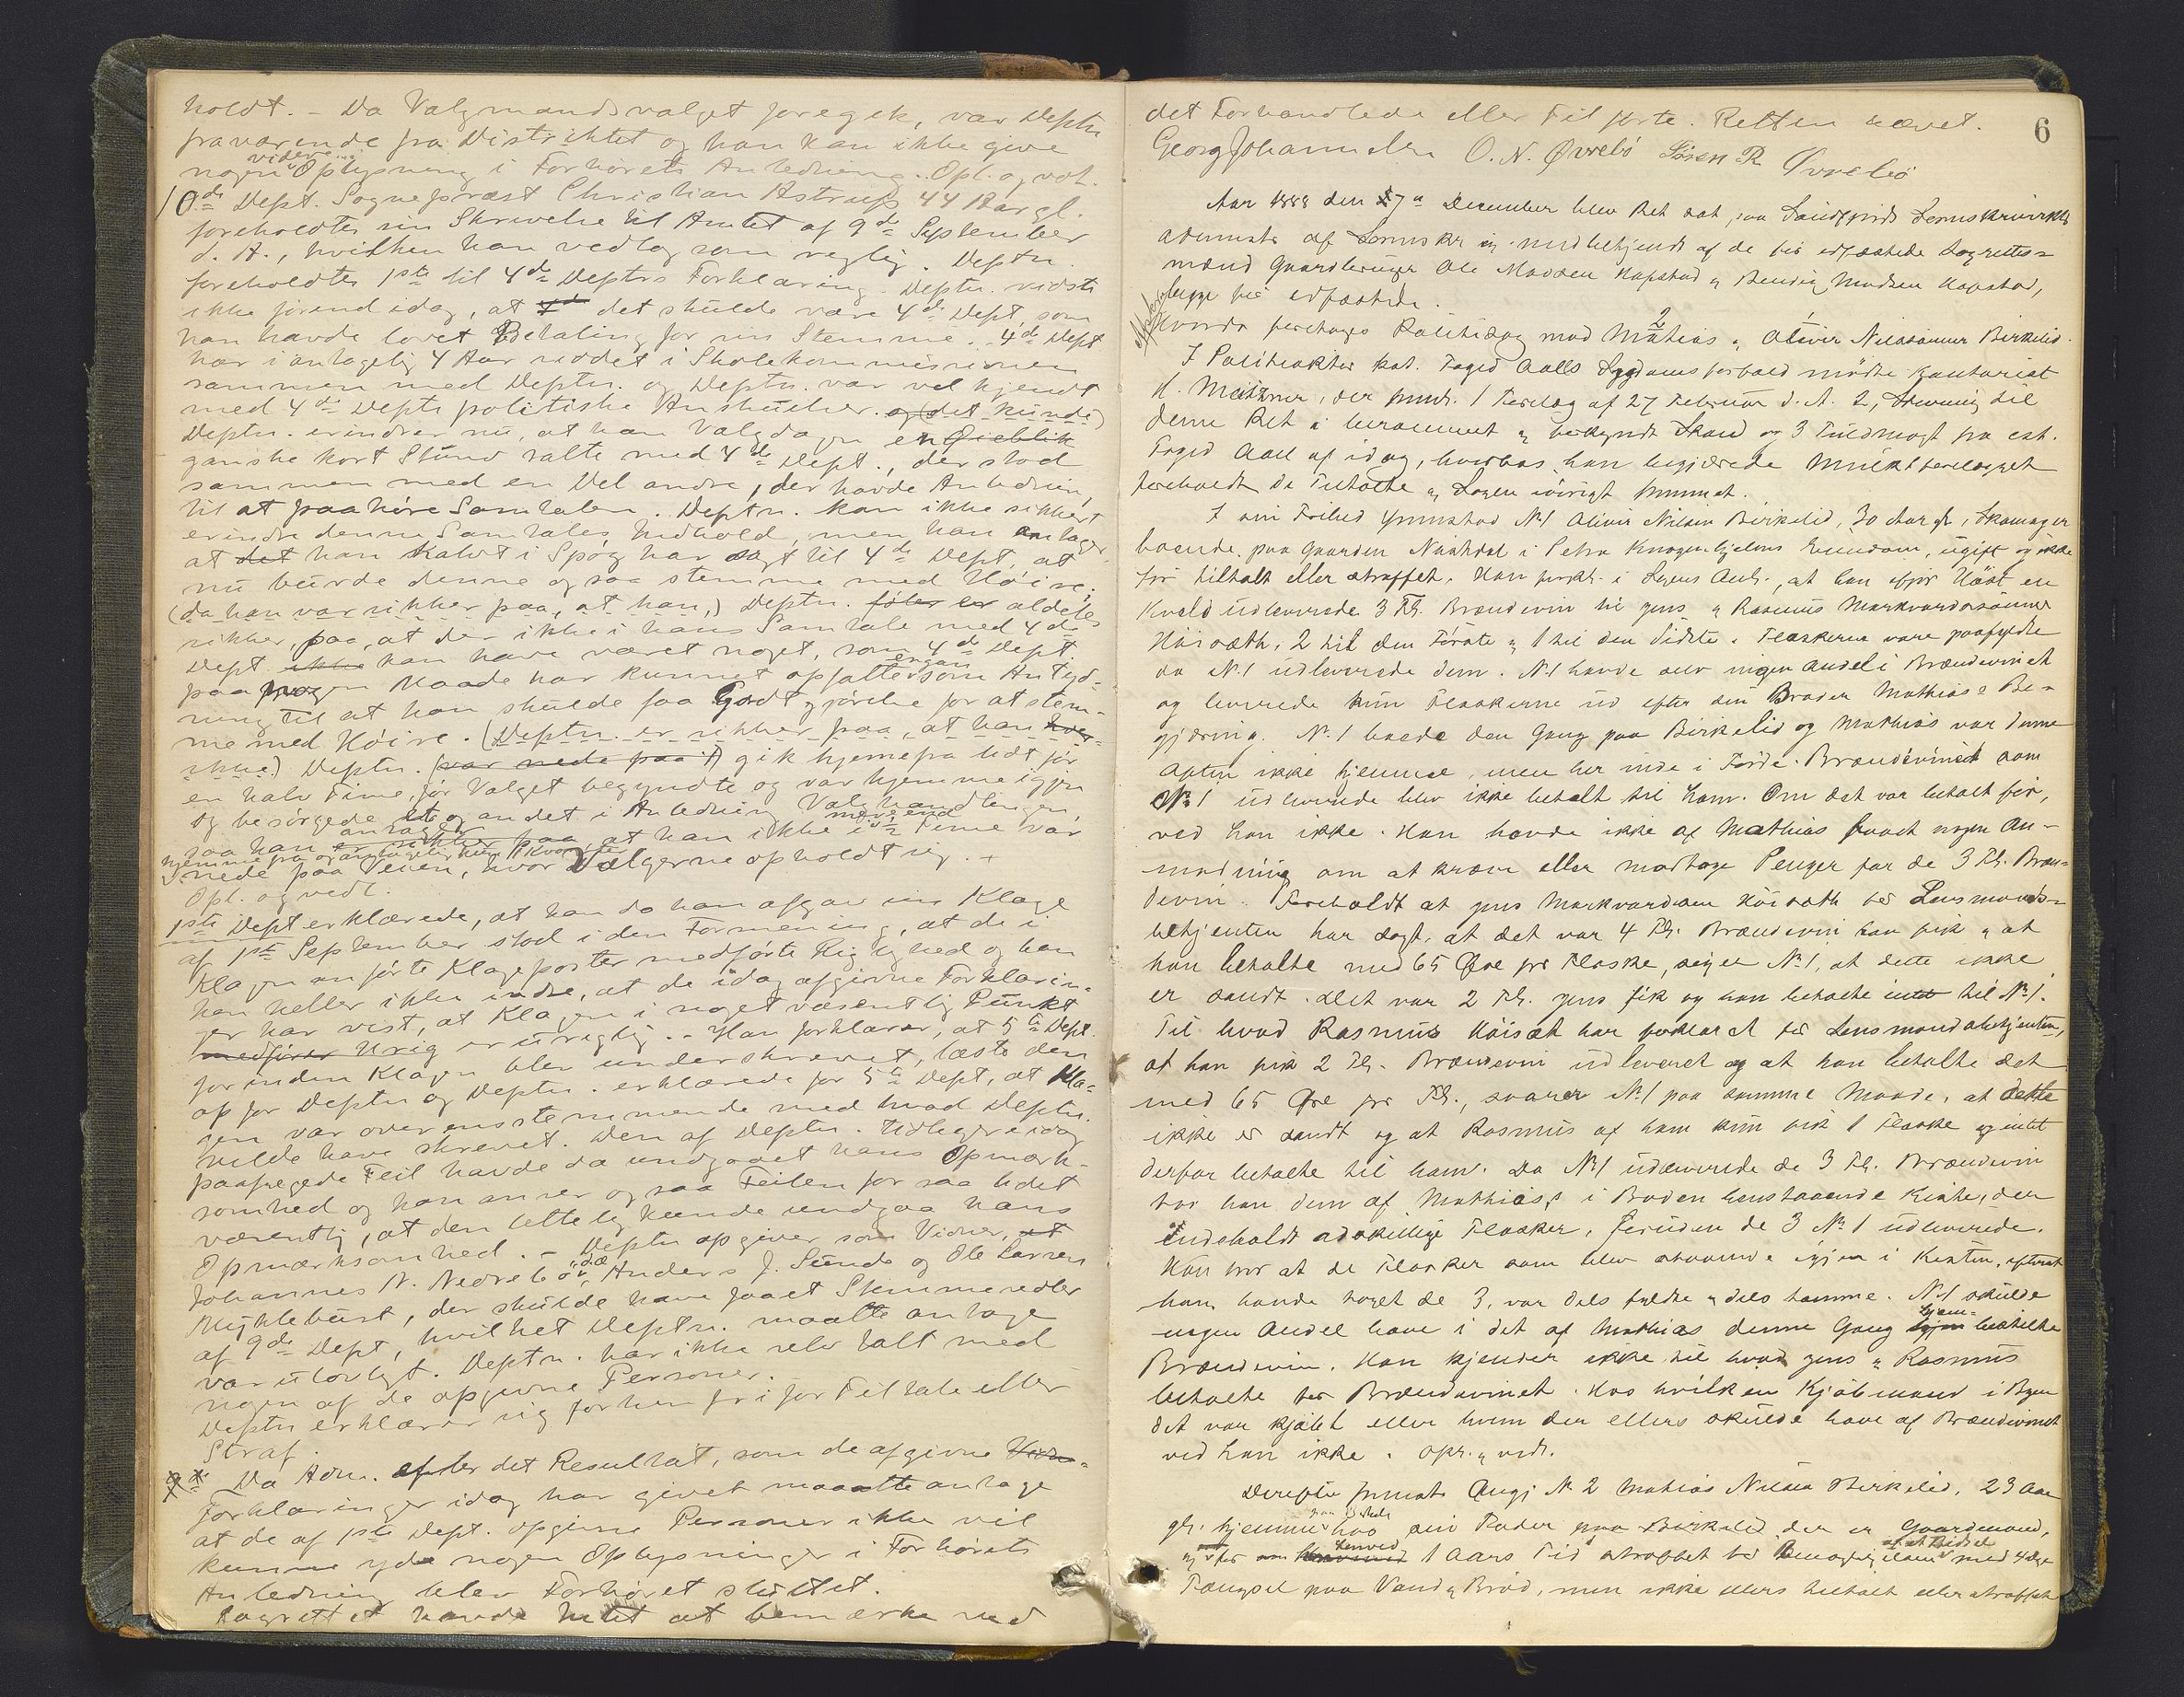 holdt. – Da Valgmandsvalget foregik, var Deptn
fraværende fra Distriktet og han kan ikke give
videre
nogen Oplysning i Forhørets Anledning. Opl. og vedt.
10de Dept. Sognepræst Christian Astrup 44 Aar gl.
foreholdtes sin Skrivelse til Amtet af 9de September
d. A., hvilken han vedtog som rigtig. Deptn.
foreholdtes 1ste til 4de Deptrs Forklaring. Deptn. vidste
ikke førend idag, at det skulde være 4de Dept, som
han havde lovet Betaling for sin Stemme. 4de Dept
har i antagelig 4 Aar siddet i Skolekommissionen
sammen med Deptn. og Deptn. var vel kjendt
med 4de Depts politiske Anskuelser. og (det kunde)
Deptn. erindrer nu, at han Valgdagen en Øieblik
ganske kort Stund talte med 4de Dept., der stod
sammen med en Del andre, der havde Anledning
til at paahøre Samtalen. Deptn. kan ikke sikkert
erindre denne Samtales Indhold, men han antager
at det han halvt i Spøg har sagt til 4de Dept, at
nu burde denne ogsaa stemme med Høire,
(da han var sikker paa, at han,) Deptn. føler er aldeles
sikker, paa, at der ikke i hans Samtale med 4de
Dept ikke kan have været noget, som 4de Dept
paa nogen Maade har kunnet opfatte som Antyd-
ning til at han skulde faa Godtgjørelse for at stem-
me med Høire. (Deptn. er sikker paa, at han
ikke) Deptn. (var nede paa) gik hjemmefra lidt før
en halv Time, før Valget begyndte og var hjemme igjen
og besørgede et og andet i Anledning Valghandlingen,
antager mere end
saa han er sikker paa at han ikke i ½ Time var
hjemmefra og antagelig kun 1 Kvarter
nede paa Veien, hvor Vælgerne opholdt sig. +
Opl. og vedt.
1ste Dept erklærede, at han da han afgav sin Klage
af 1ste September stod i den Formening, at de i
Klagen anførte Klageposter medførte Rigtighed og han
kan heller ikke indse, at de idag afgivne Forklarin-
ger har vist, at Klagen i noget væsentlig Punkt
medfører Urig er urigtig. – Han forklarer, at 5te Dept.
forinden Klagen blev underskrevet, læste den
op for Deptn og Deptn. erklærede for 5te Dept, at Kla-
gen var overensstemmende med hvad Deptn.
vilde have skrevet. Den af Deptn. tidligere idag
paapegede Feil havde da undgaaet hans Opmærk-
somhed og han anser ogsaa Feilen for saa lidet
væsentlig, at den lettelig kunde undgaa hans
Opmærksomhed. – Deptn opgiver som Vidner, at
Johannes N. Nedrebø, Anders J. Sunde og Ole Larsen
Myklebust, der skulde have faaet Stemmesedler
af 9de Dept, hvilket Deptn. maatte antage
var ulovligt. Deptn. har ikke selv talt med
nogen af de opgivne Personer.
Deptn erklærer sig forhen fri for Tiltale eller
Straf.
Da Adm. efter det Resultat, som de afgivne Vidn-
Forklaringer idag har givet maatte antage
at de af 1ste Dept. opgivne Personer ikke vil
kunne yde nogen Oplysninger i Forhørets
Anledning blev Forhøret sluttet.
Lagrettet havde Intet at bemærke ved
6
det Forhandlede eller Tilførte. Retten hævet.
Georg Johannesen O. N. Øvrebø Søren R. Øvrebø
Aar 1888 den 17de December blev Ret sat paa Søndfjords Sorenskriverikts
af Sorenskr og medbetjent af de før edfæstede Lagrettes-
mænd Gaardbruger Ole Madsen Hapstad og Bendix Madsen Hapstad,
begge før edfæstede.
2 1
Hvorda foretoges Politisag mod Mathias og Oliver Nilssønner Birkelid.
I Politiaktor kst. Foged Aalls Sygdoms forfald mødte Kontorist
H. Meitzner, der fremlr. 1 Forelæg af 27 Februar d. A. 2, Stevning til
denne Ret i berammet og forkyndt Stand og 3 Fuldmagt fra cst.
Foged Aall af idag, hvorhos han begjærede Mulktforelægget
foreholdt de Tiltalte og Sagen iøvrigt fremmet.
I sin Frihed fremstod No 1 Oliver Nilsen Birkelid, 30 Aar gl, Skomager
boende paa Gaarden Naustdal i Petra Knagenhjelms Eiendom, ugift og ikke
før tiltalt eller straffet. Han forkl. i Sagens Anl., at han ifjor Høst en
Kveld udleverede 3 Fl. Brændevin til Jens og Rasmus Markvardssønner
Høisæth, 2 til den Første og 1 til den Sidste. Flaskerne vare paafyldte
da No 1 udleverede dem. No 1 havde selv ingen Andel i Brændevinet
og leverede kun Flaskerne ud efter sin Broder Mathias's Be-
gjæring. No 1 boede den Gang paa Birkelid og Mathias var denne
Aften ikke hjemme, men her inde i Førde. Brændevinet som
No 1 udleverede blev ikke betalt til ham. Om det var betalt før,
ved han ikke. Han havde ikke af Mathias faaet nogen An-
modning om at kræve eller modtage Penger for de 3 Fl. Bræn-
devin. Foreholdt at Jens Markvardsen Høisæth for Lensmands-
betjenten har sagt, at det var 4 Fl. Brændevin han fik og at
han betalte med 65 Øre pr Flaske, siger No 1, at dette ikke
er sandt. Det var 2 Fl. Jens fik og han betalte intet til No 1.
Til hvad Rasmus Høisæt har forklaret for Lensmandsbetjenten,
at han fik 2 Fl. Brændevin udleveret og at han betalte det
med 65 Øre pr Fl., svarer No 1 paa samme Maade, at dette
ikke er sandt og at Rasmus af ham kun fik 1 Flaske og intet
derfor betalte til ham. Da No 1 udleverede de 3 Fl. Brændevin
tog han dem af Mathias's i Boden henstaaende Kiste, der
indeholdt adskillige Flasker, foruden de 3 No 1 udleverede.
Han tror at de Flasker som blev staaende igjen i Kisten, efterat
han havde taget de 3, var dels fyldte og dels tomme. No 1 skulde
hjem-
ingen Andel have i det af Mathias denne Gang bestilte
Brændevin. Han kjender ikke til hvad Jens og Rasmus
betalte for Brændevinet. Hos hvilken Kjøbmand i Byen
det var kjøbt eller hvem der ellers skulde have af Brændevinet
ved han ikke. Opl. og vedt.
Derefter fremst. Angj No 2 Mathias Nilsen Birkelid, 23 Aar
gl. hjemme hos sin Fader paa Birkelid, der er Gaardmand,
og for 1 Aars Tid straffet med 4 Dages
Fængsel paa Vand og Brød, men ikke ellers tiltalt eller straffet